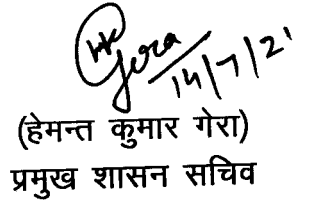 HK Gera
14/7/21
(हेमन्त कुमार गेरा)
प्रमुख शासन सचिव